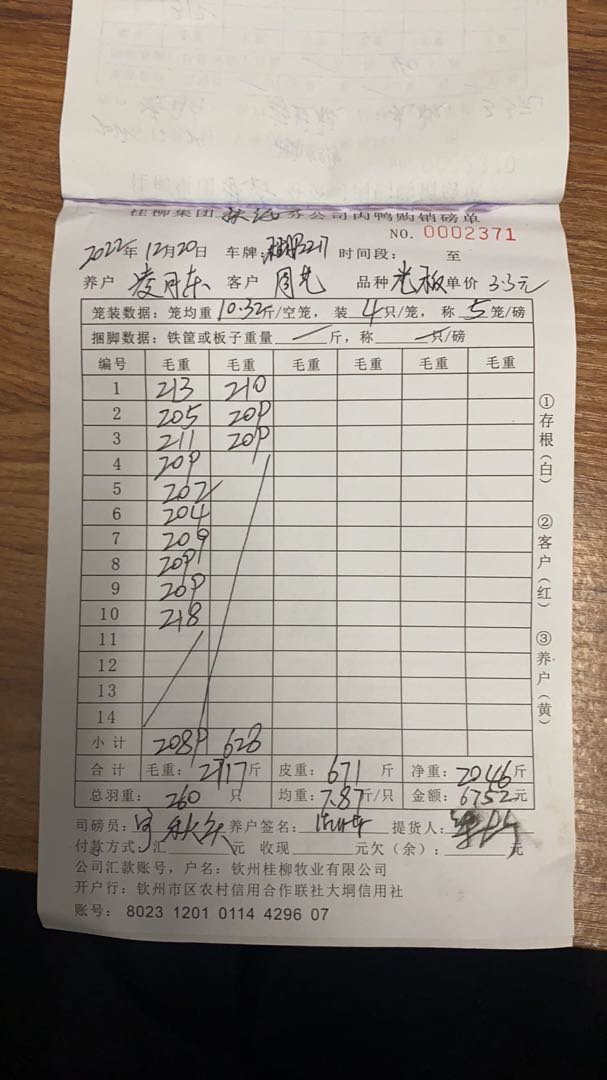 桂柳集团 扶绥 分公司肉鸭购销磅单
NO. 0002371
2022年12月20日 车牌: 时间段: 至
养户 凌月东 客户 品种 光板 单价 3.3元
笼装数据: 笼均重 10.32斤/空笼, 装 4只/笼, 称 5笼/磅
捆脚数据: 铁筐或板子重量 斤, 称 只/磅
编号 毛重 毛重 毛重 毛重 毛重 毛重
1 213 210
2 205 209
3 211 209
4 209
5 202
6 204
7 209
8 209
9 209
10 218
11
12
13
14
小计 2089 628
合计 毛重: 2717斤 皮重: 671斤 净重: 2046斤
总羽重: 260只 均重: 7.87斤/只 金额: 6752元
司磅员: 养户签名: 提货人:
付款方式: 汇 元 收现 元欠(余): 元
公司汇款账号, 户名: 钦州桂柳牧业有限公司
开户行: 钦州市区农村信用合作联社大垌信用社
账号: 8023 1201 0114 4296 07
①存根(白)
②客户(红)
③养户(黄)